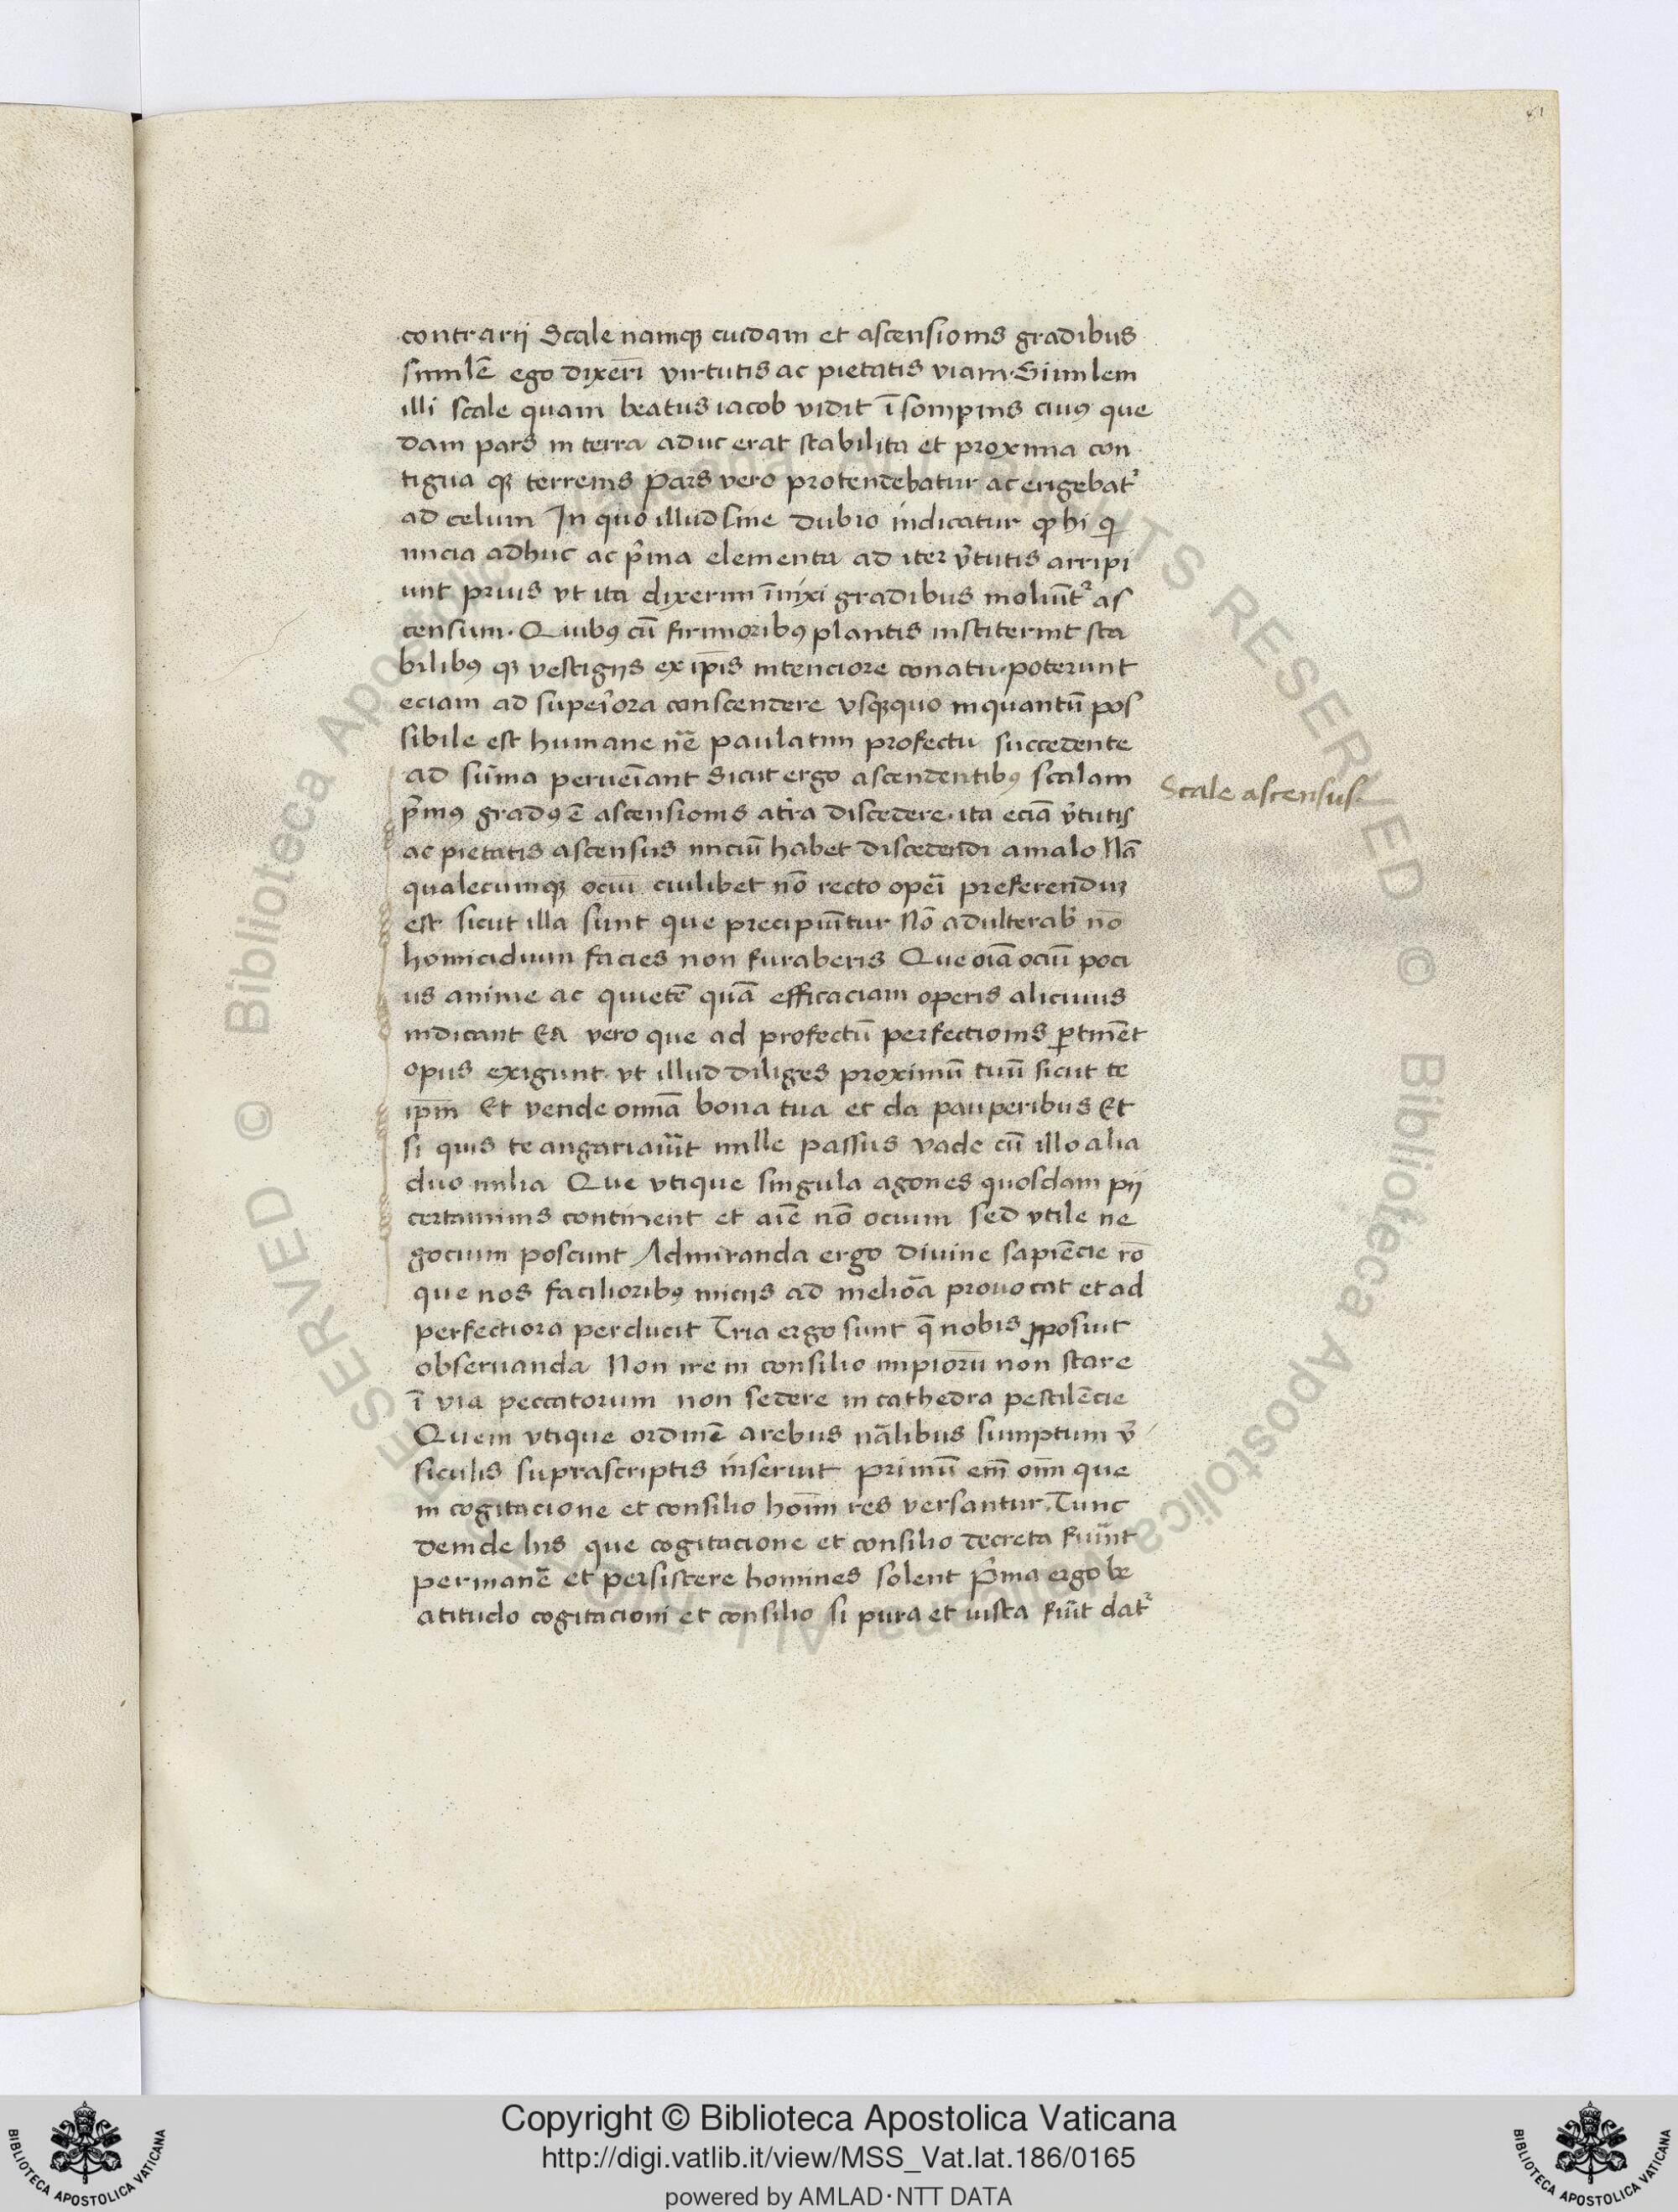 81
contrarij Scale namqꝫ cuidam et ascensionis gradibus
similē ego dixeri̅ virtutis ac pietatis viam· Similem
illi scale quam beatus iacob vidit ī sompnis cuiꝰ que
dam pars in terra aduc erat stabilita et proxima con
tigua qꝫ terrenis Pars vero protendebatur ac erigebat᷑
ad celum In quo illud sine dubio indicatur ꝙ hi qi
inicia adhuc ac p̓ma elementa ad iter v̓tutis arripi
unt prius vt ita dixerim īnixi gradibus moliūt᷑ as
censum· Quibꝰ cū firmioribꝰ plantis institerint sta
bilibꝰ qꝫ vestigijs ex ip̄is intenciore conatu· poterunt
eciam ad superiora conscendere vsqꝫquo inquantū pos
sibile est humane nr̄e paulatim profectu succedente
ad sūma perueīant Sicut ergo ascendentibꝰ scalam
Scale ascensus·
p̓mꝰ gradꝰ ē ascensionis at̓ra discedere· ita eciā v̓tutis
ac pietatis ascensus iniciū habet discedendi amalo Nā
qualecumqꝫ ociū cuilibet nō recto operi preferenduꝫ
est sicut illa sunt que precipiūtur Nō adulterab̓ nō
homicidium facies non furaberis Que oīa ociū poci
us anime ac quietē quā efficaciam operis alicuius
indicant Ea vero que ad profectū perfectionis ꝑtinēt
opus exigunt· vt illud diliges proximū tuū sicut te
ip̄m Et vende omīa bona tua et da pauperibus Et
si quis te angariau̅it mille passus vade cū illo alia
duo milia Que vtique singula agones quosdam pij
certaminis continent et aīe nō ocium sed vtile ne
gocium poscunt Admiranda ergo diuine sapiēcie rō
que nos facilioribꝰ inicijs ad meliōa prouocat et ad
perfectiora perducit Tria ergo sunt q̄ nobis ꝓposuit
obseruanda Non ire in consilio impiorū non stare
ī via peccatorum non sedere in cathedra pestilēcie
Quem vtique ordinē arebus nālibus sumptum v̓
siculis suprascriptis inseruit primū em̄ om̄ que
in cogitacione et consilio hoīm res versantur· Tunc
deinde his que cogitacione et consilio decreta fuīnt
permanē et persistere homines solent P̓ma ergo be
atitudo cogitacioni et consilio si pura et iusta fuīt dat᷑
© Biblioteca Apostolica Vaticana ALL RIGHTS RESERVED
© Biblioteca Apostolica Vaticana ALL RIGHTS RESERVED
Copyright © Biblioteca Apostolica Vaticana
http://digi.vatlib.it/view/MSS_Vat.lat.186/0165
powered by AMLAD·NTT DATA
BIBLIOTECA APOSTOLICA VATICANA
BIBLIOTECA APOSTOLICA VATICANA